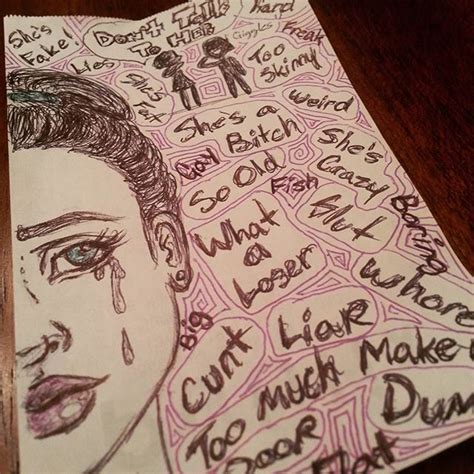 She's
Fake!
Don't Talk
To HER
Hard
Lies
Giggles
Freak
She's
Fat
Too
Skinny
Weird
She's a
Bitch
Gay
So Old
Fish
She's
Crazy
Slut
Boring
What
a
Loser
Whore
Big
Cunt
Liar
Too Much Make
Dum
Poor
Flat